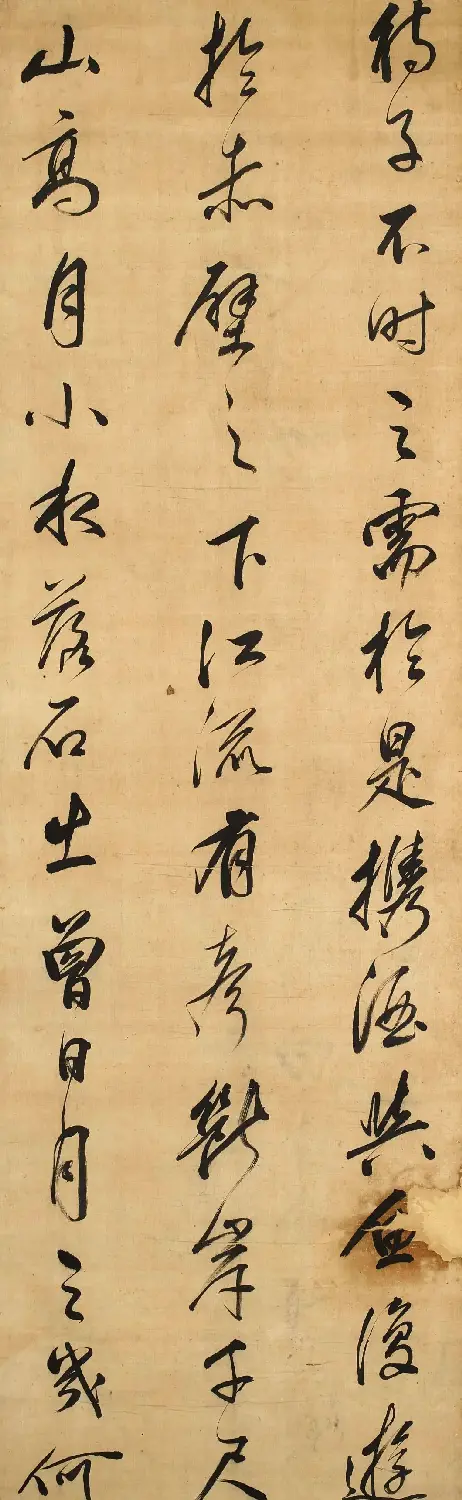 待子不时之需於是携酒與魚復遊
於赤壁之下江流有聲斷岸千尺
山高月小水落石出曾日月之幾何